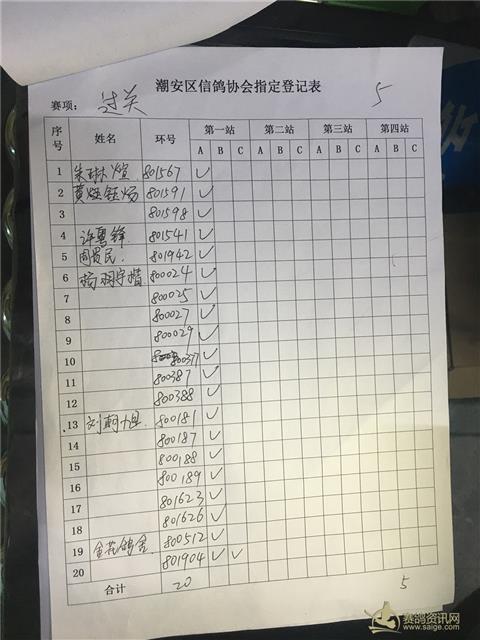 潮安区信鸽协会指定登记表
赛项： 过关 5
序号 姓名 环号 第一站 第二站 第三站 第四站
A B C A B C A B C A B C
1 朱琳煊 801567 ✓
2 801591 ✓
3 801598 ✓
4 许粤锋 801541 ✓
5 周贵民 801942 ✓
6 800024 ✓
7 800025 ✓
8 800027 ✓
9 800029 ✓
10 800377 ✓
11 800387 ✓
12 800388 ✓
13 800181 ✓
14 800187 ✓
15 800188 ✓
16 800189 ✓
17 801623 ✓
18 801626 ✓
19 金花鸽舍 800512 ✓
20 801904 ✓ ✓
合计 20 5
赛鸽资讯网
www.saige.com